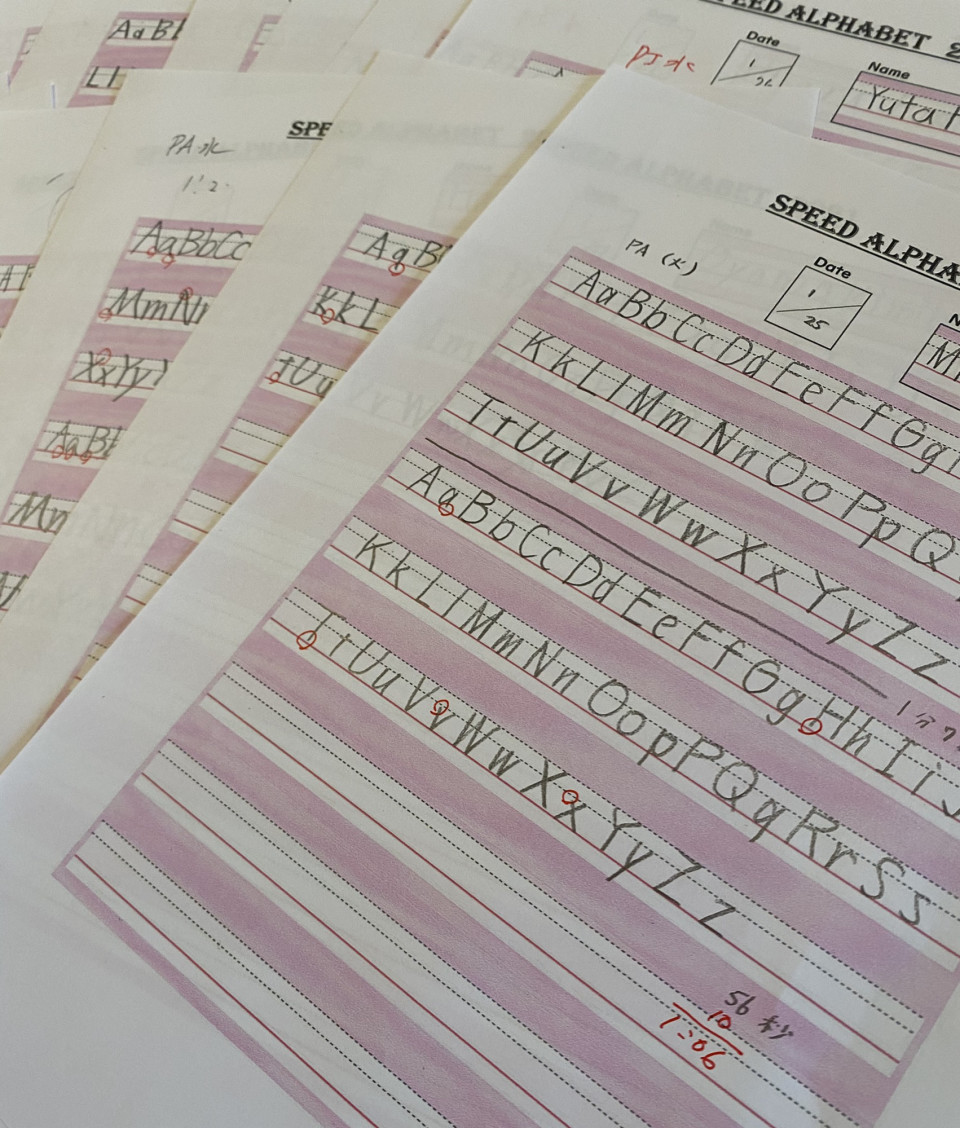 Aa Bb
Ll
SPEED ALPHABET
Date
1/26
Name
Yuta
PA 水
Aa Bb Cc
Mm Nn
Xx Yy
Aa Bb
Mm
SPE
Aa B
Kk L
t Uu
SPEED ALPHA
PA (火)
Date
1/25
Aa Bb Cc Dd Ee Ff Gg
Kk Ll Mm Nn Oo Pp Q
Tt Uu Vv Ww Xx Yy Zz
1分
Aa Bb Cc Dd Ee Ff Gg Hh Ii J
Kk Ll Mm Nn Oo pP Qq Rr Ss
Tt Uu Vv Ww Xx Yy Zz
56秒
10
1:06